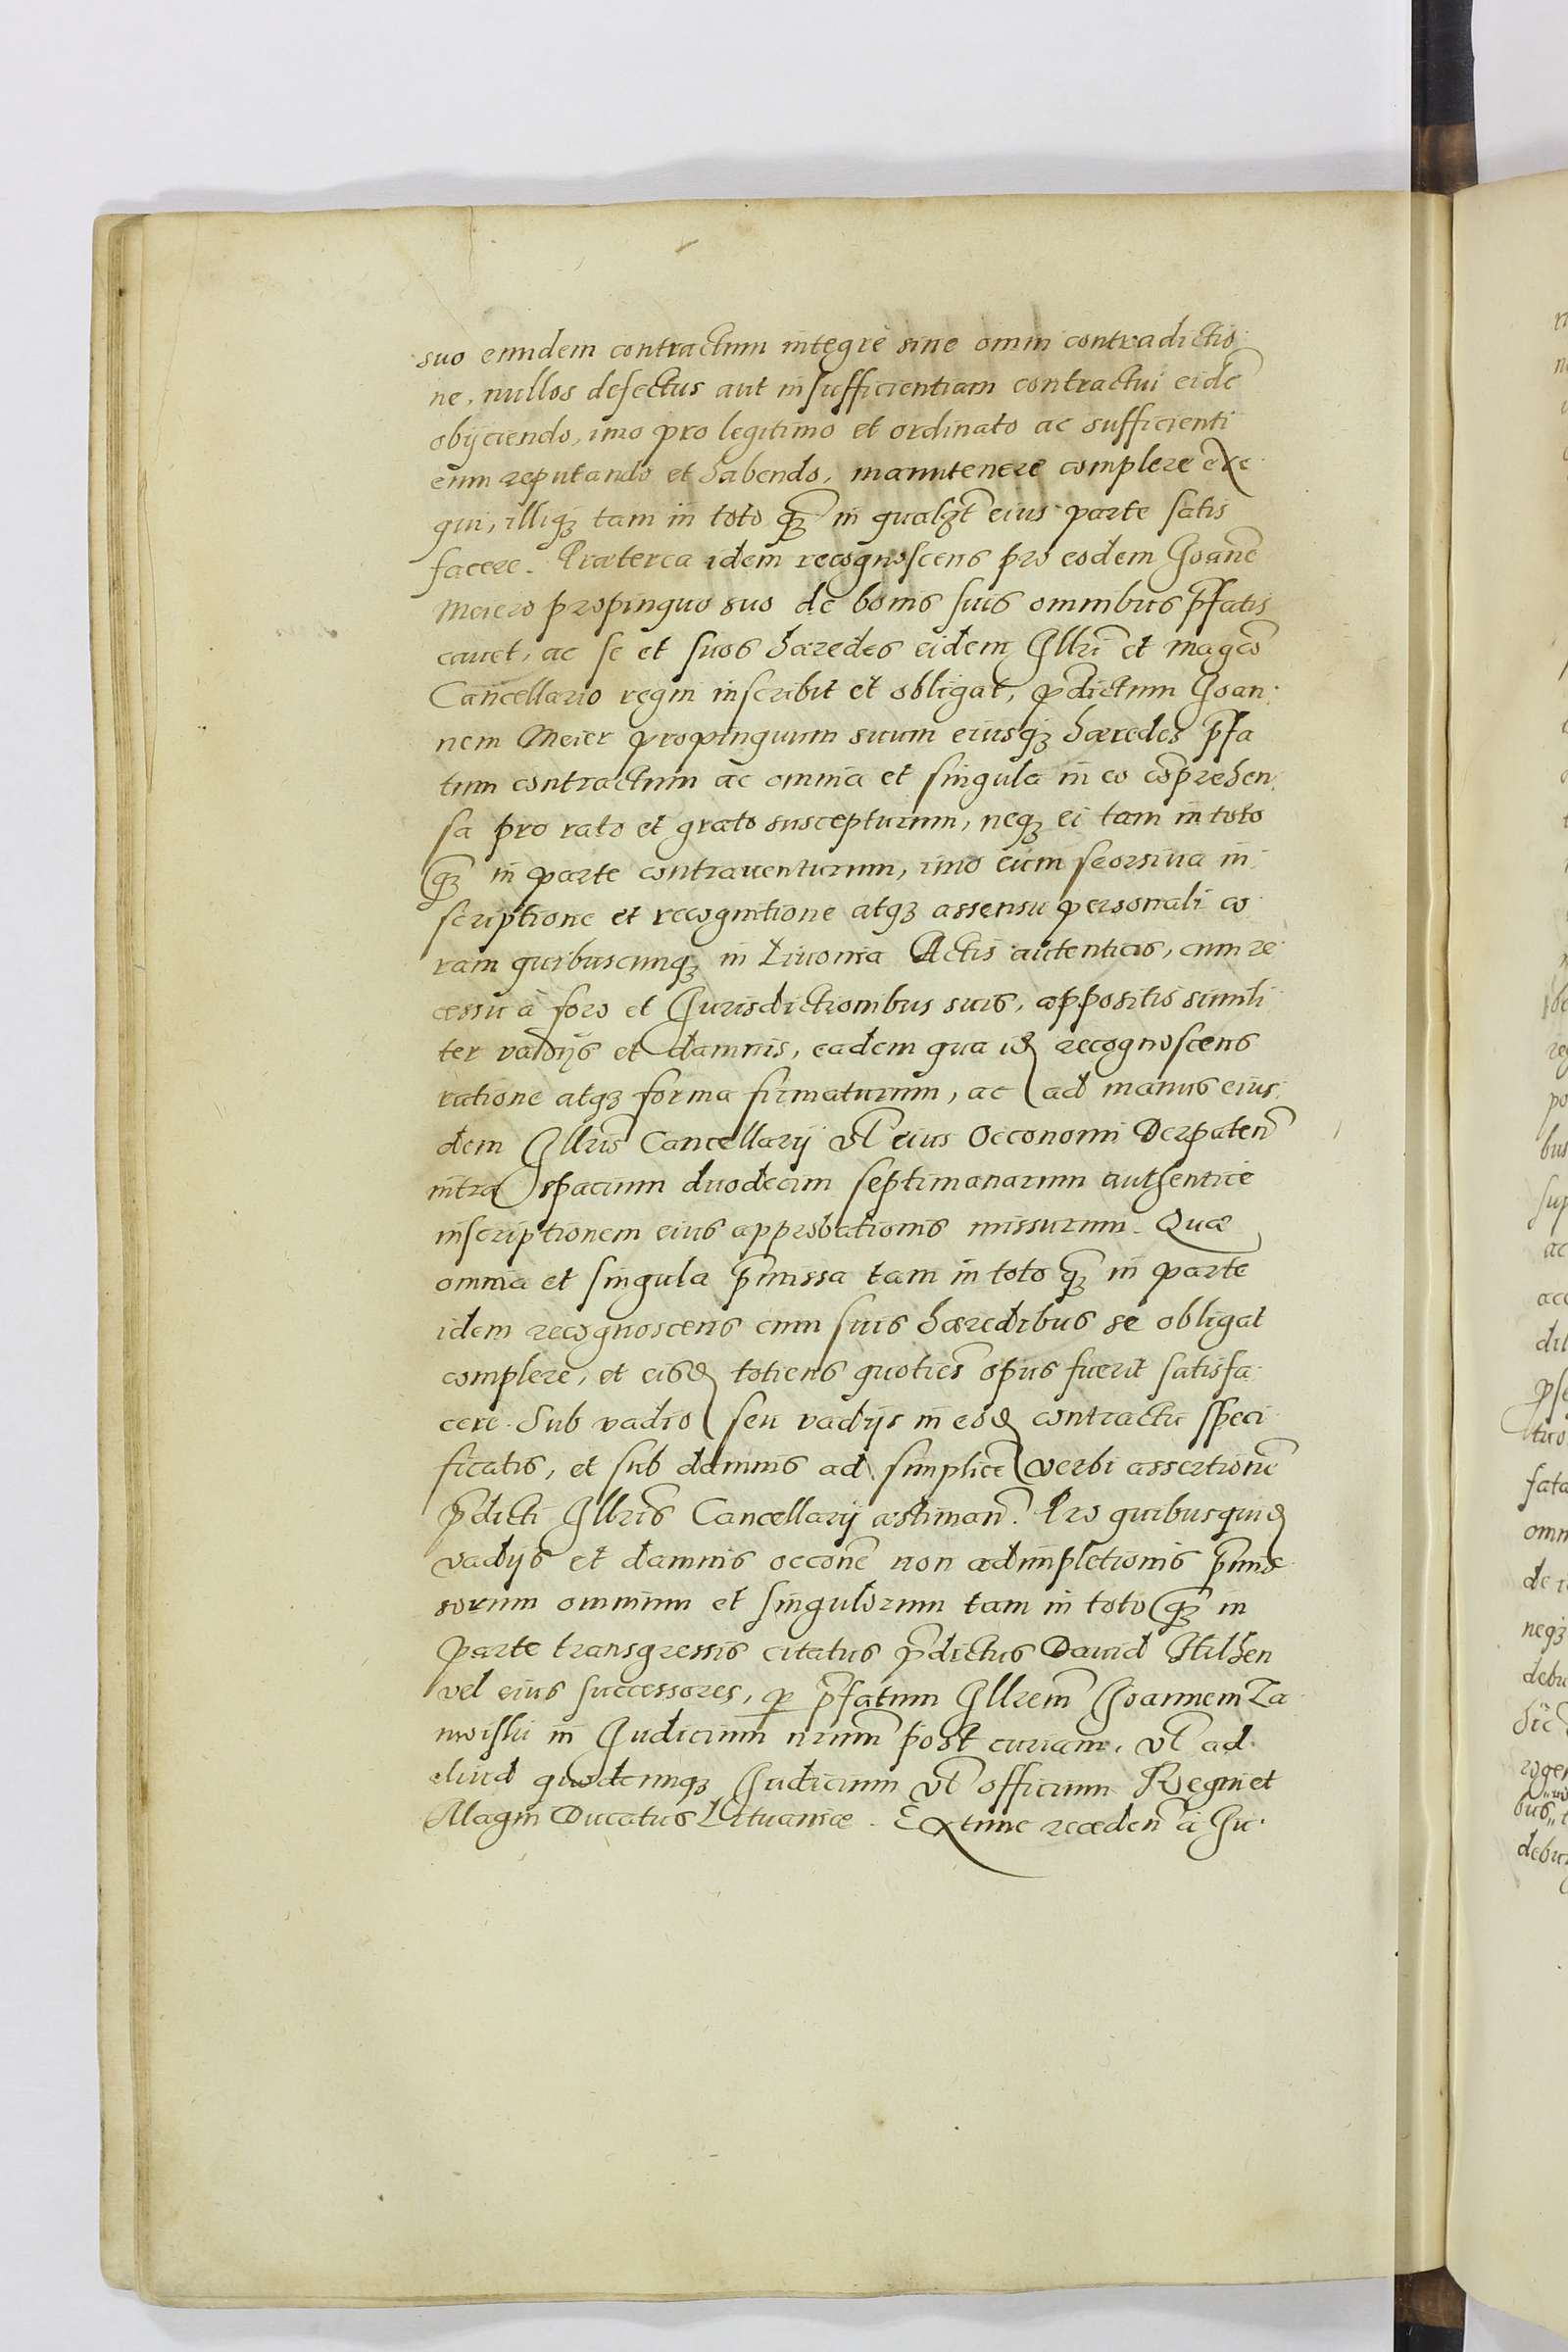 suo eundem contractum integre sine omni contradictio
ne, nullos defectus aut insufficientiam contractui eidē
obijciendo, imo pro legitimo et ordinato ac sufficienti
eum reputando et habendo, manutenere complere exe
qui, illiqꝫ tam in toto qꝫ in qualꝫt eius parte satis
facere. Præterea idem recognoscens pro eodem Joanē
Meiero propinquo suo de bonis suis omnibus p̄fatis
cauet, ac se et suos hæredes eidem Illri et magco
Cancellario regni inscribit et obligat, p̄dictum Joan
nem Meier propinquum suum eiusqꝫ hæredes p̄fa
tum contractum ac omnia et singula in eo cōprehen
sa pro rato et grato suscepturum, neqꝫ ei tam in toto
qꝫ in parte contrauenturum, imo eum seorsiua in
scriptione et recognitione atqꝫ assensu personali co
ram quibuscunqꝫ in Liuonia Actis autenticis, cum re
cessu à foro et Jurisdictionibus suis, appositis simili
ter vadijs et damnis, eadem qua id recognoscens
ratione atqꝫ forma firmaturum, ac ad manus eius
dem Illris Cancellarij vl eius Oeconomi Derpaten̄
intra spacium duodecim septimanarum authentice
inscriptionem eius approbationis missurum. Quæ
omnia et singula p̄missa tam in toto qꝫ in parte
idem recognoscens cum suis hæredibus se obligat
complere, et eisd totiens quoties opus fuerit satisfa
cere. Sub vadio seu vadijs in eod contractu speci
ficatis, et sub damnis ad simplicē verbi assertionē
p̄dicti Illris Cancellarij æstiman̄. Pro quibusquid
vadijs et damnis occōne non adimpletionis p̄mis
sorum omnium et singulorum tam in toto qꝫ in
parte transgressis citatus p̄dictus Dauid Hilhen
vel eius successores, p̱ p̄fatum Illrem Joannem Za
moiski in Judicium nrum post curiam, vl ad
aliud quodcunqꝫ Judicium vl officium Regni et
Magni Ducatus Lituaniæ. Ex tunc receden̄ à Ju